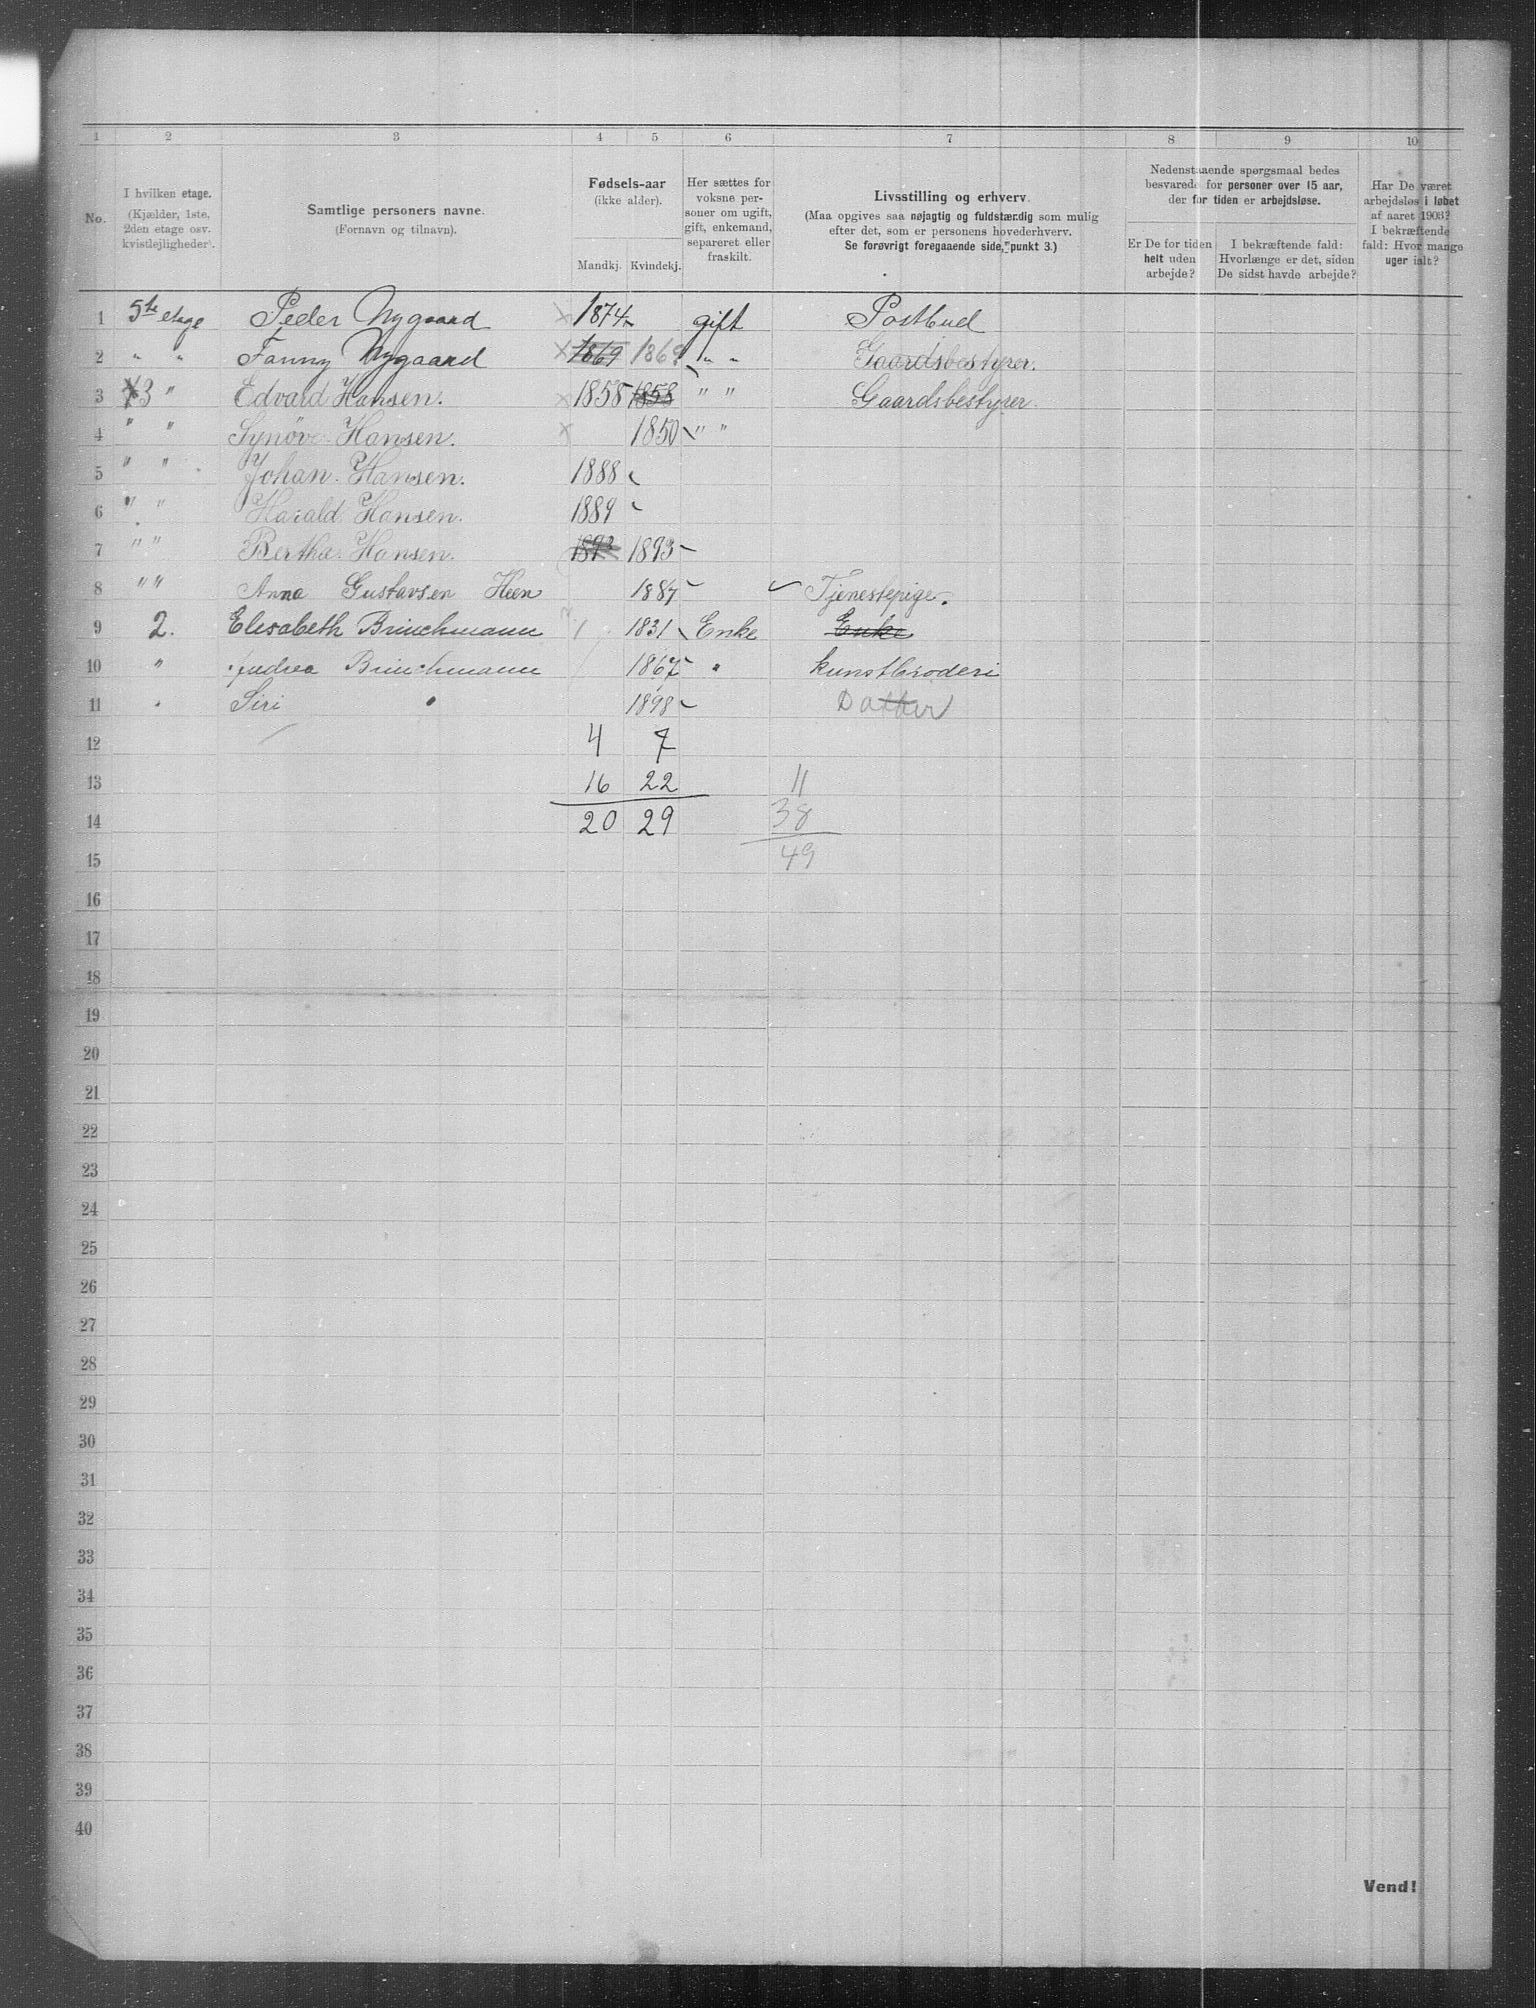 1 2 3 4 5 6 7 8 9 10
No.
I hvilken etage.
(Kjælder, 1ste,
2den etage osv.
kvistlejligheder).
Samtlige personers navne.
(Fornavn og tilnavn).
Fødsels-aar
(ikke alder).
Mandkj. Kvindekj.
Her sættes for
voksne per-
soner om ugift,
gift, enkemand,
separeret eller
fraskilt.
Livsstilling og erhverv.
(Maa opgives saa nøjagtig og fuldstændig som mulig
efter det, som er personens hovederhverv.
Se forøvrigt foregaaende side, punkt 3.)
Nedenstaaende spørgsmaal bedes
besvarede for personer over 15 aar,
der for tiden er arbejdsløse.
Er De for tiden
helt uden
arbejde?
I bekræftende fald:
Hvorlænge er det, siden
De sidst havde arbejde?
Har De været
arbejdsløs i løbet
af aaret 1903?
I bekræftende
fald: Hvor mange
uger ialt?
1 5te etage Peder Nygaard × 1874 gift Postbud
2 " " Fanny Nygaard × 1869 1869 " " Gaardsbestyrer.
3 3 " Edvard Hansen. × 1858 1858 " " Gaardsbestyrer.
4 " " Synöve Hansen. × 1850 " "
5 " " Johan Hansen. 1888
6 " " Harald Hansen. 1889
7 " " Bertha Hansen. 1893 1893
8 " " Anna Gustavsen Heen 1887 Tjenestepige.
9 2. Elisabeth Brinchmann 1831 Enke Enke
10 " Andrea Brinchmann 1867 " kunstbroderi
11 " Siri " 1898 Datter
12 4 7
13 16 22 11
14 20 29 38
15 49
16
17
18
19
20
21
22
23
24
25
26
27
28
29
30
31
32
33
34
35
36
37
38
39
40
Vend!